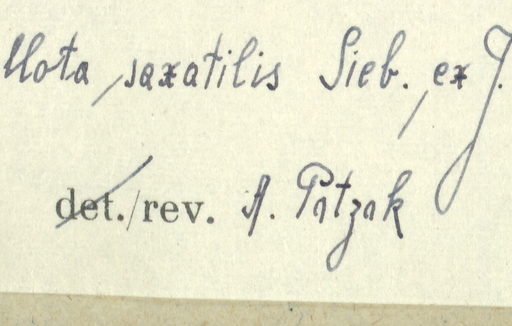 llota saxatilis Sieb. ex J.
det./rev. A. Patzak